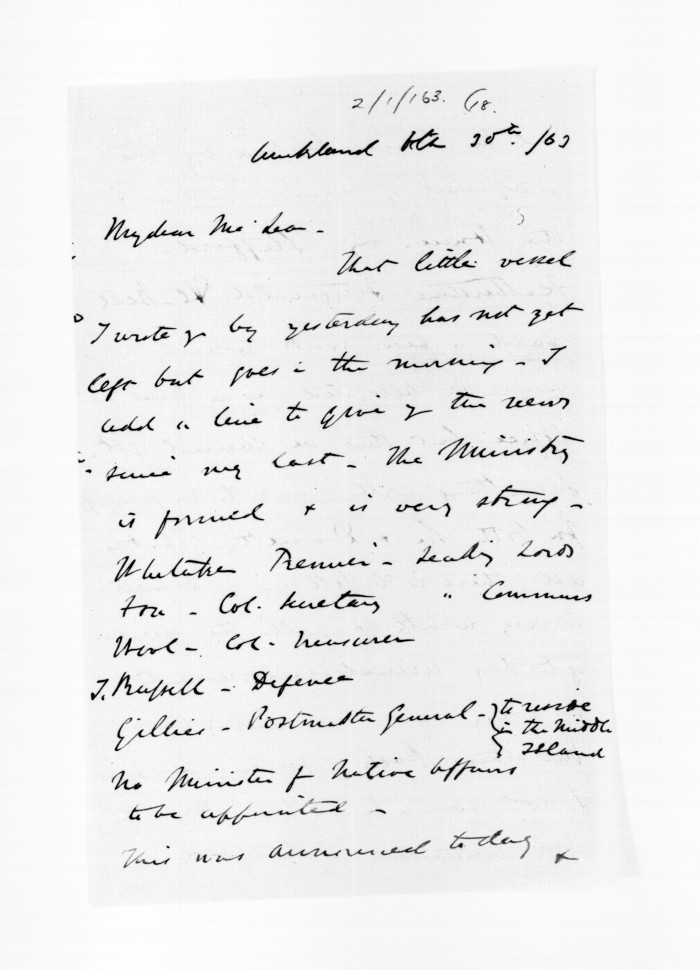 2/1/163. (18.
Auckland Octr 30th /63
My dear McLean -
That little vessel
I wrote yo by yesterday has not yet
left but goes in the morning - I
add a line to give yo the news
since my last - The Ministry
is formed & is very strong -
Whitaker Premier - leading Lords
Fox - Col. Secretary " Commons
Wood - Col - Treasurer
T. Russell - Defence
Gillies - Postmaster General - to reside
in the Middle
Island
No Minister of Native Affairs
to be appointed -
This was announced today &